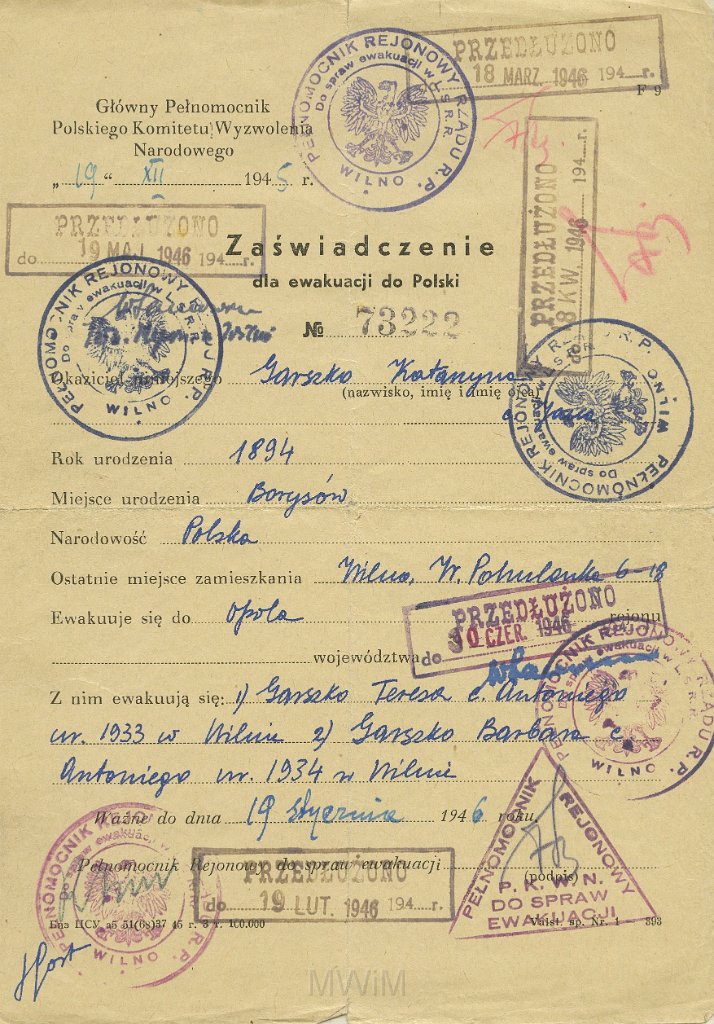 PRZEDŁUŻONO
18 MARZ. 1946 194 r.
F 9
PEŁNOMOCNIK REJONOWY RZĄDU R.P.
Do spraw ewakuacji w L.S.R.R.
WILNO
Główny Pełnomocnik
Polskiego Komitetu Wyzwolenia
Narodowego
„19" XII 1945 r.
PRZEDŁUŻONO
8 KW. 1946 194 r.
PRZEDŁUŻONO
do 19 MAJ 1946 194 r.
Zaświadczenie
dla ewakuacji do Polski
№ 73222
PEŁNOMOCNIK REJONOWY RZĄDU R.P.
Do spraw ewakuacji w L.S.R.R.
WILNO
Okaziciel niniejszego Garszko Katarzyna
(nazwisko, imię i imię ojca)
c. Jana
PEŁNOMOCNIK REJONOWY RZĄDU R.P.
Do spraw ewakuacji w L.S.R.R.
WILNO
Rok urodzenia 1894
Miejsce urodzenia Borysów
Narodowość Polska
Ostatnie miejsce zamieszkania Wilno, W. Pohulanka 6-18
Ewakuuje się do Opola rejonu
PRZEDŁUŻONO
do 30 CZER. 1946 194 r.
województwa
Z nim ewakuują się: 1) Garszko Teresa c. Antoniego
ur. 1933 w Wilnie 2) Garszko Barbara c.
Antoniego ur. 1934 w Wilnie
PEŁNOMOCNIK REJONOWY RZĄDU R.P.
Do spraw ewakuacji w L.S.R.R.
WILNO
Ważne do dnia 19 stycznia 1946 roku.
Pełnomocnik Rejonowy do spraw ewakuacji
(podpis)
PRZEDŁUŻONO
do 19 LUT. 1946 194 r.
PEŁNOMOCNIK REJONOWY
P. K. W. N.
DO SPRAW
EWAKUACJI
PEŁNOMOCNIK REJONOWY RZĄDU R.P.
Do spraw ewakuacji w
WILNO
100.000
Valst. sp. Nr. 1 — 393
MWiM